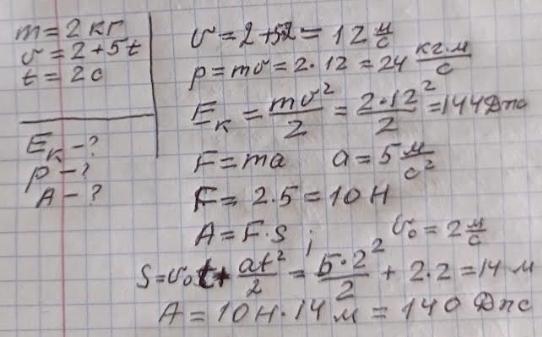 m = 2 кг
υ = 2 + 5t
t = 2 с
Eк - ?
p - ?
A - ?
υ = 2 + 5·2 = 12 м/с
p = mυ = 2 · 12 = 24 кг·м/с
Eк = mυ²/2 = 2·12²/2 = 144 Дж
F = ma a = 5 м/с²
F = 2 · 5 = 10 Н
A = F · s ; υ₀ = 2 м/с
S = υ₀t + at²/2 = 5·2²/2 + 2·2 = 14 м
A = 10 Н · 14 м = 140 Дж